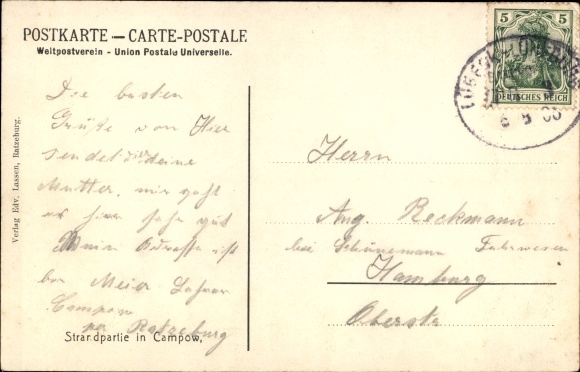 POSTKARTE — CARTE-POSTALE
Weltpostverein - Union Postale Universelle.
5 5
DEUTSCHES REICH
LÜBECK-LÜNEBURG
6 9 06
Die besten
Grüße von Hier
sendet dir deine
Mutter, mir geht
es hier sehr gut
Meine Adresse ist
bei Meier
Campow
per Ratzeburg
Herrn
Aug. Reckmann
bei Schünemann Fuhrwesen
Hamburg
Oberstr
Strandpartie in Campow.
Verlag Edv. Lassen, Ratzeburg.